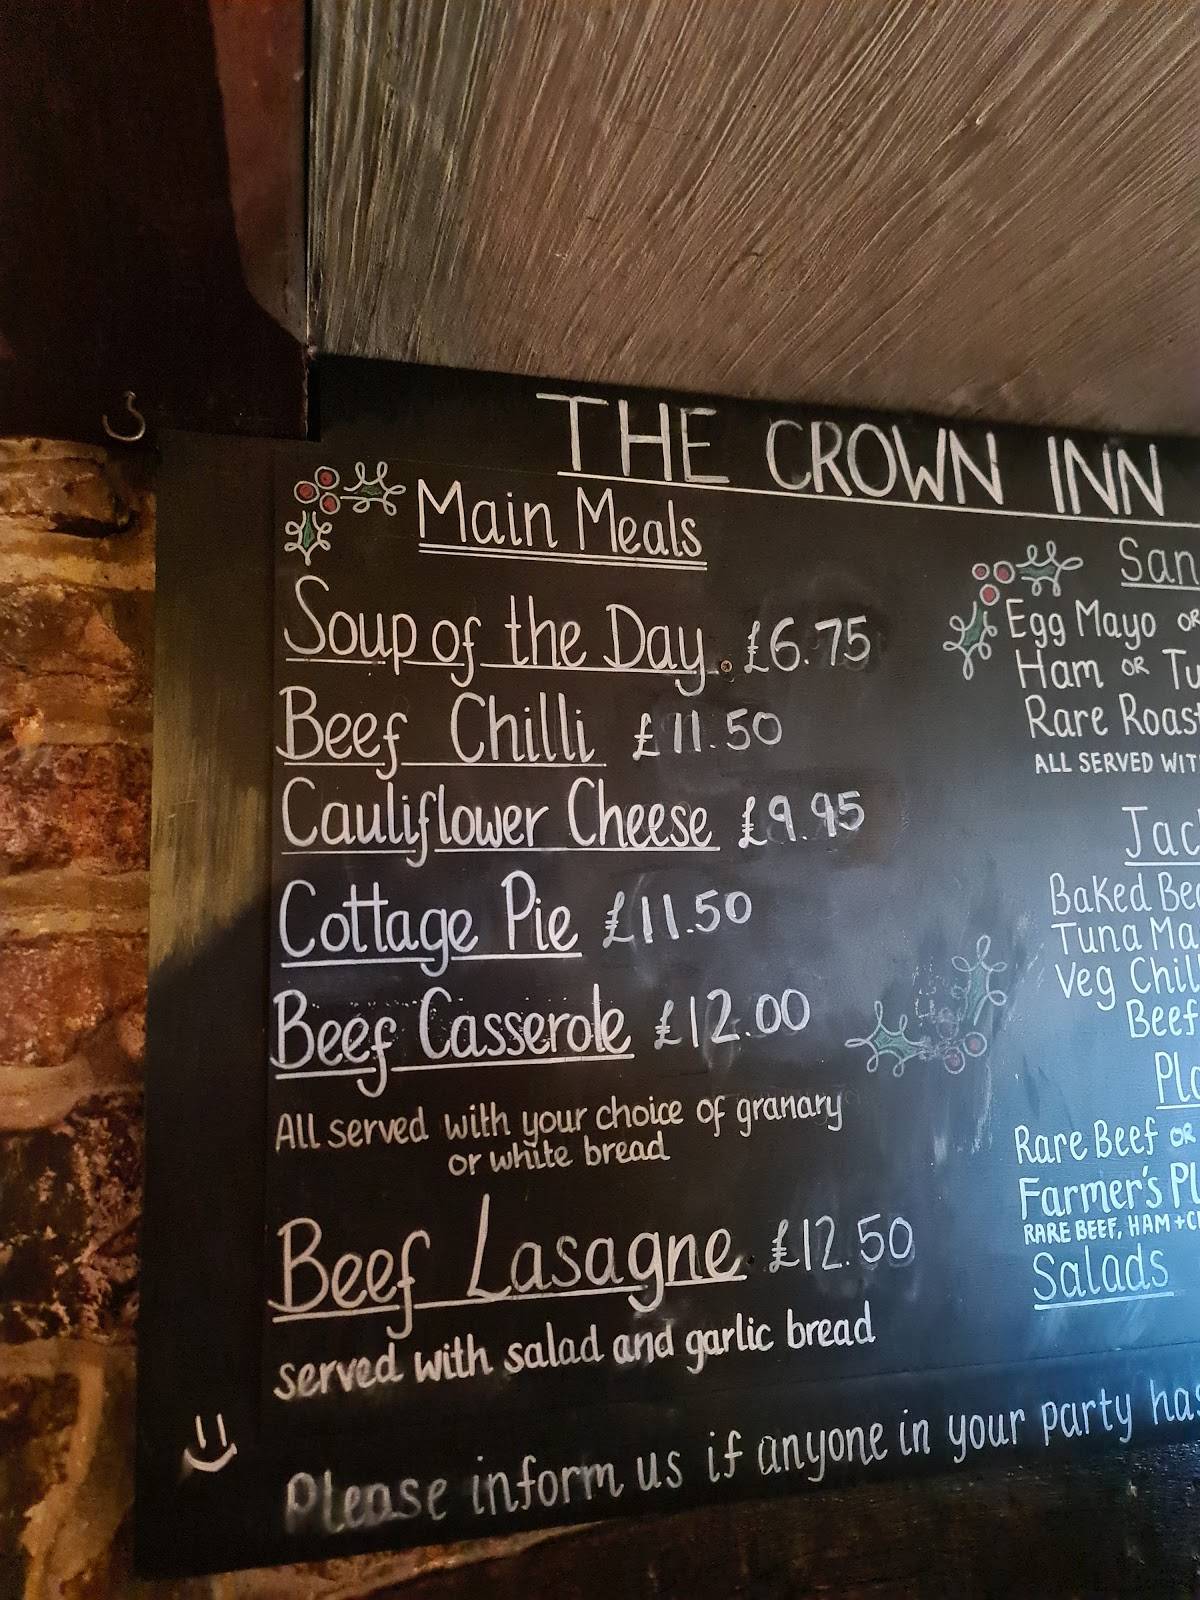 THE CROWN INN
Main Meals
Soup of the Day £6.75
Beef Chilli £11.50
Cauliflower Cheese £9.95
Cottage Pie £11.50
Beef Casserole £12.00
All served with your choice of granary
or white bread
Beef Lasagne £12.50
served with salad and garlic bread
Egg Mayo OR
Ham OR
Rare Roast
ALL SERVED
Baked
Tuna
Veg
Beef
Rare Beef OR
Farmer's
RARE BEEF, HAM +
Salads
Please inform us if anyone in your party